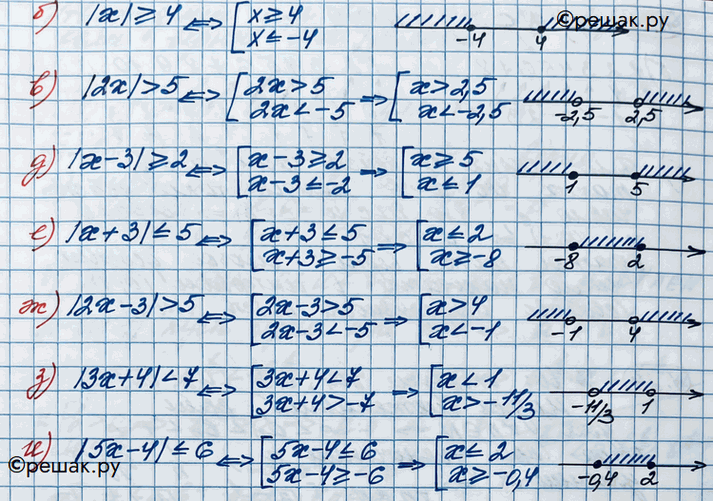 б) |x| ≥ 4 <=> [x ≥ 4 x ≤ -4 -4 4 ©решак.ру
в) |2x| > 5 <=> [2x > 5 2x < -5 => [x > 2,5 x < -2,5 -2,5 2,5
д) |x-3| ≥ 2 <=> [x-3 ≥ 2 x-3 ≤ -2 => [x ≥ 5 x ≤ 1 1 5
е) |x+3| ≤ 5 <=> [x+3 ≤ 5 x+3 ≥ -5 => [x ≤ 2 x ≥ -8 -8 2
ж) |2x-3| > 5 <=> [2x-3 > 5 2x-3 < -5 => [x > 4 x < -1 -1 4
з) |3x+4| < 7 <=> [3x+4 < 7 3x+4 > -7 => [x < 1 x > -11/3 -11/3 1
и) |5x-4| ≤ 6 <=> [5x-4 ≤ 6 5x-4 ≥ -6 => [x ≤ 2 x ≥ -0,4 -0,4 2
©решак.ру